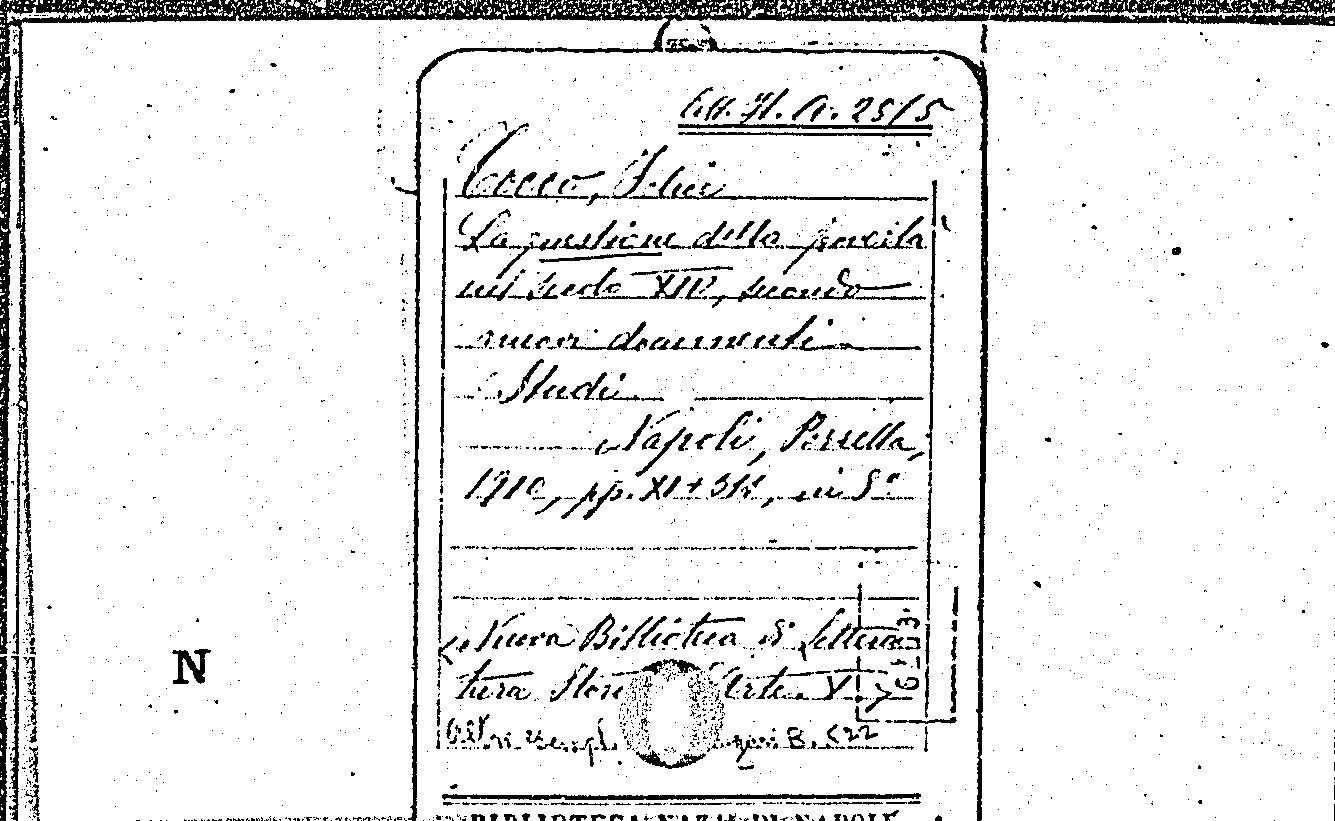 25/5
Tocco, Felice
La questione della povertà
nel secolo XIV, secondo
nuovi documenti
Studi
Napoli, Perrella,
1910, pp. XI+ in 8°
Nuova Biblioteca di Lettera
tura Arte. V.
6-13
N
B. 522
BIBLIOTECA NAZ. DI NAPOLI